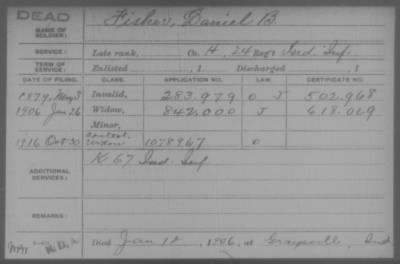 DEAD
NAME OF SOLDIER: Fisher, Daniel B.
SERVICE: Late rank, Co. H, 24 Reg't Ind. Inf.
TERM OF SERVICE: Enlisted , 1 Discharged , 1
DATE OF FILING. CLASS. APPLICATION NO. LAW. CERTIFICATE NO.
1879, May 3 Invalid, 283.979 O J 502.968
1906 Jan 26 Widow, 842,000 J 618.029
Minor,
1916 Oct 30 Contest. Widow 1078967 O
ADDITIONAL SERVICES: K 67 Ind. Inf
REMARKS:
Died Jan 18, 1906, at Graysville, Ind